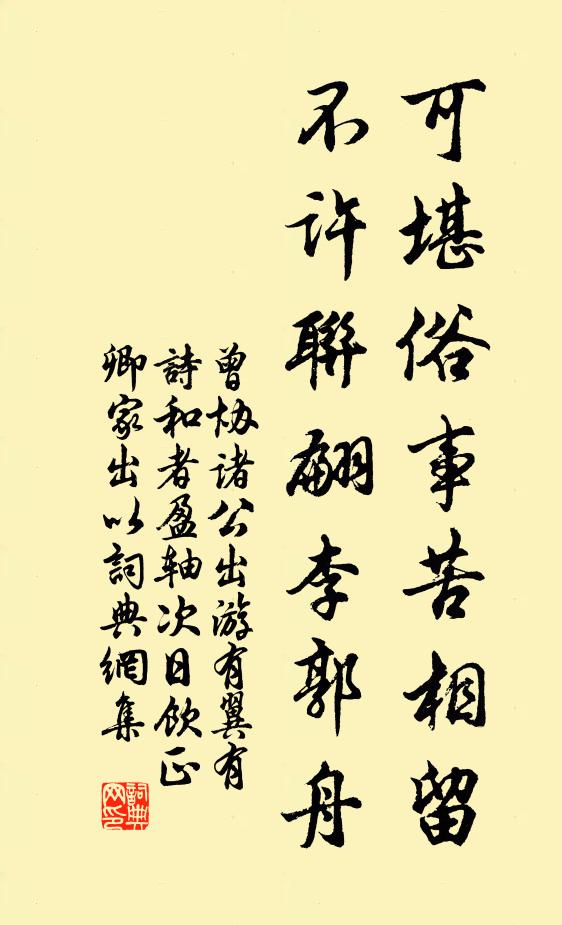 可堪俗事苦相留
不許聯翩李郭舟
曾協諸公出游有翼有
詩和者盈轴次日飲正
卿家出以詞典網集
詞典网印